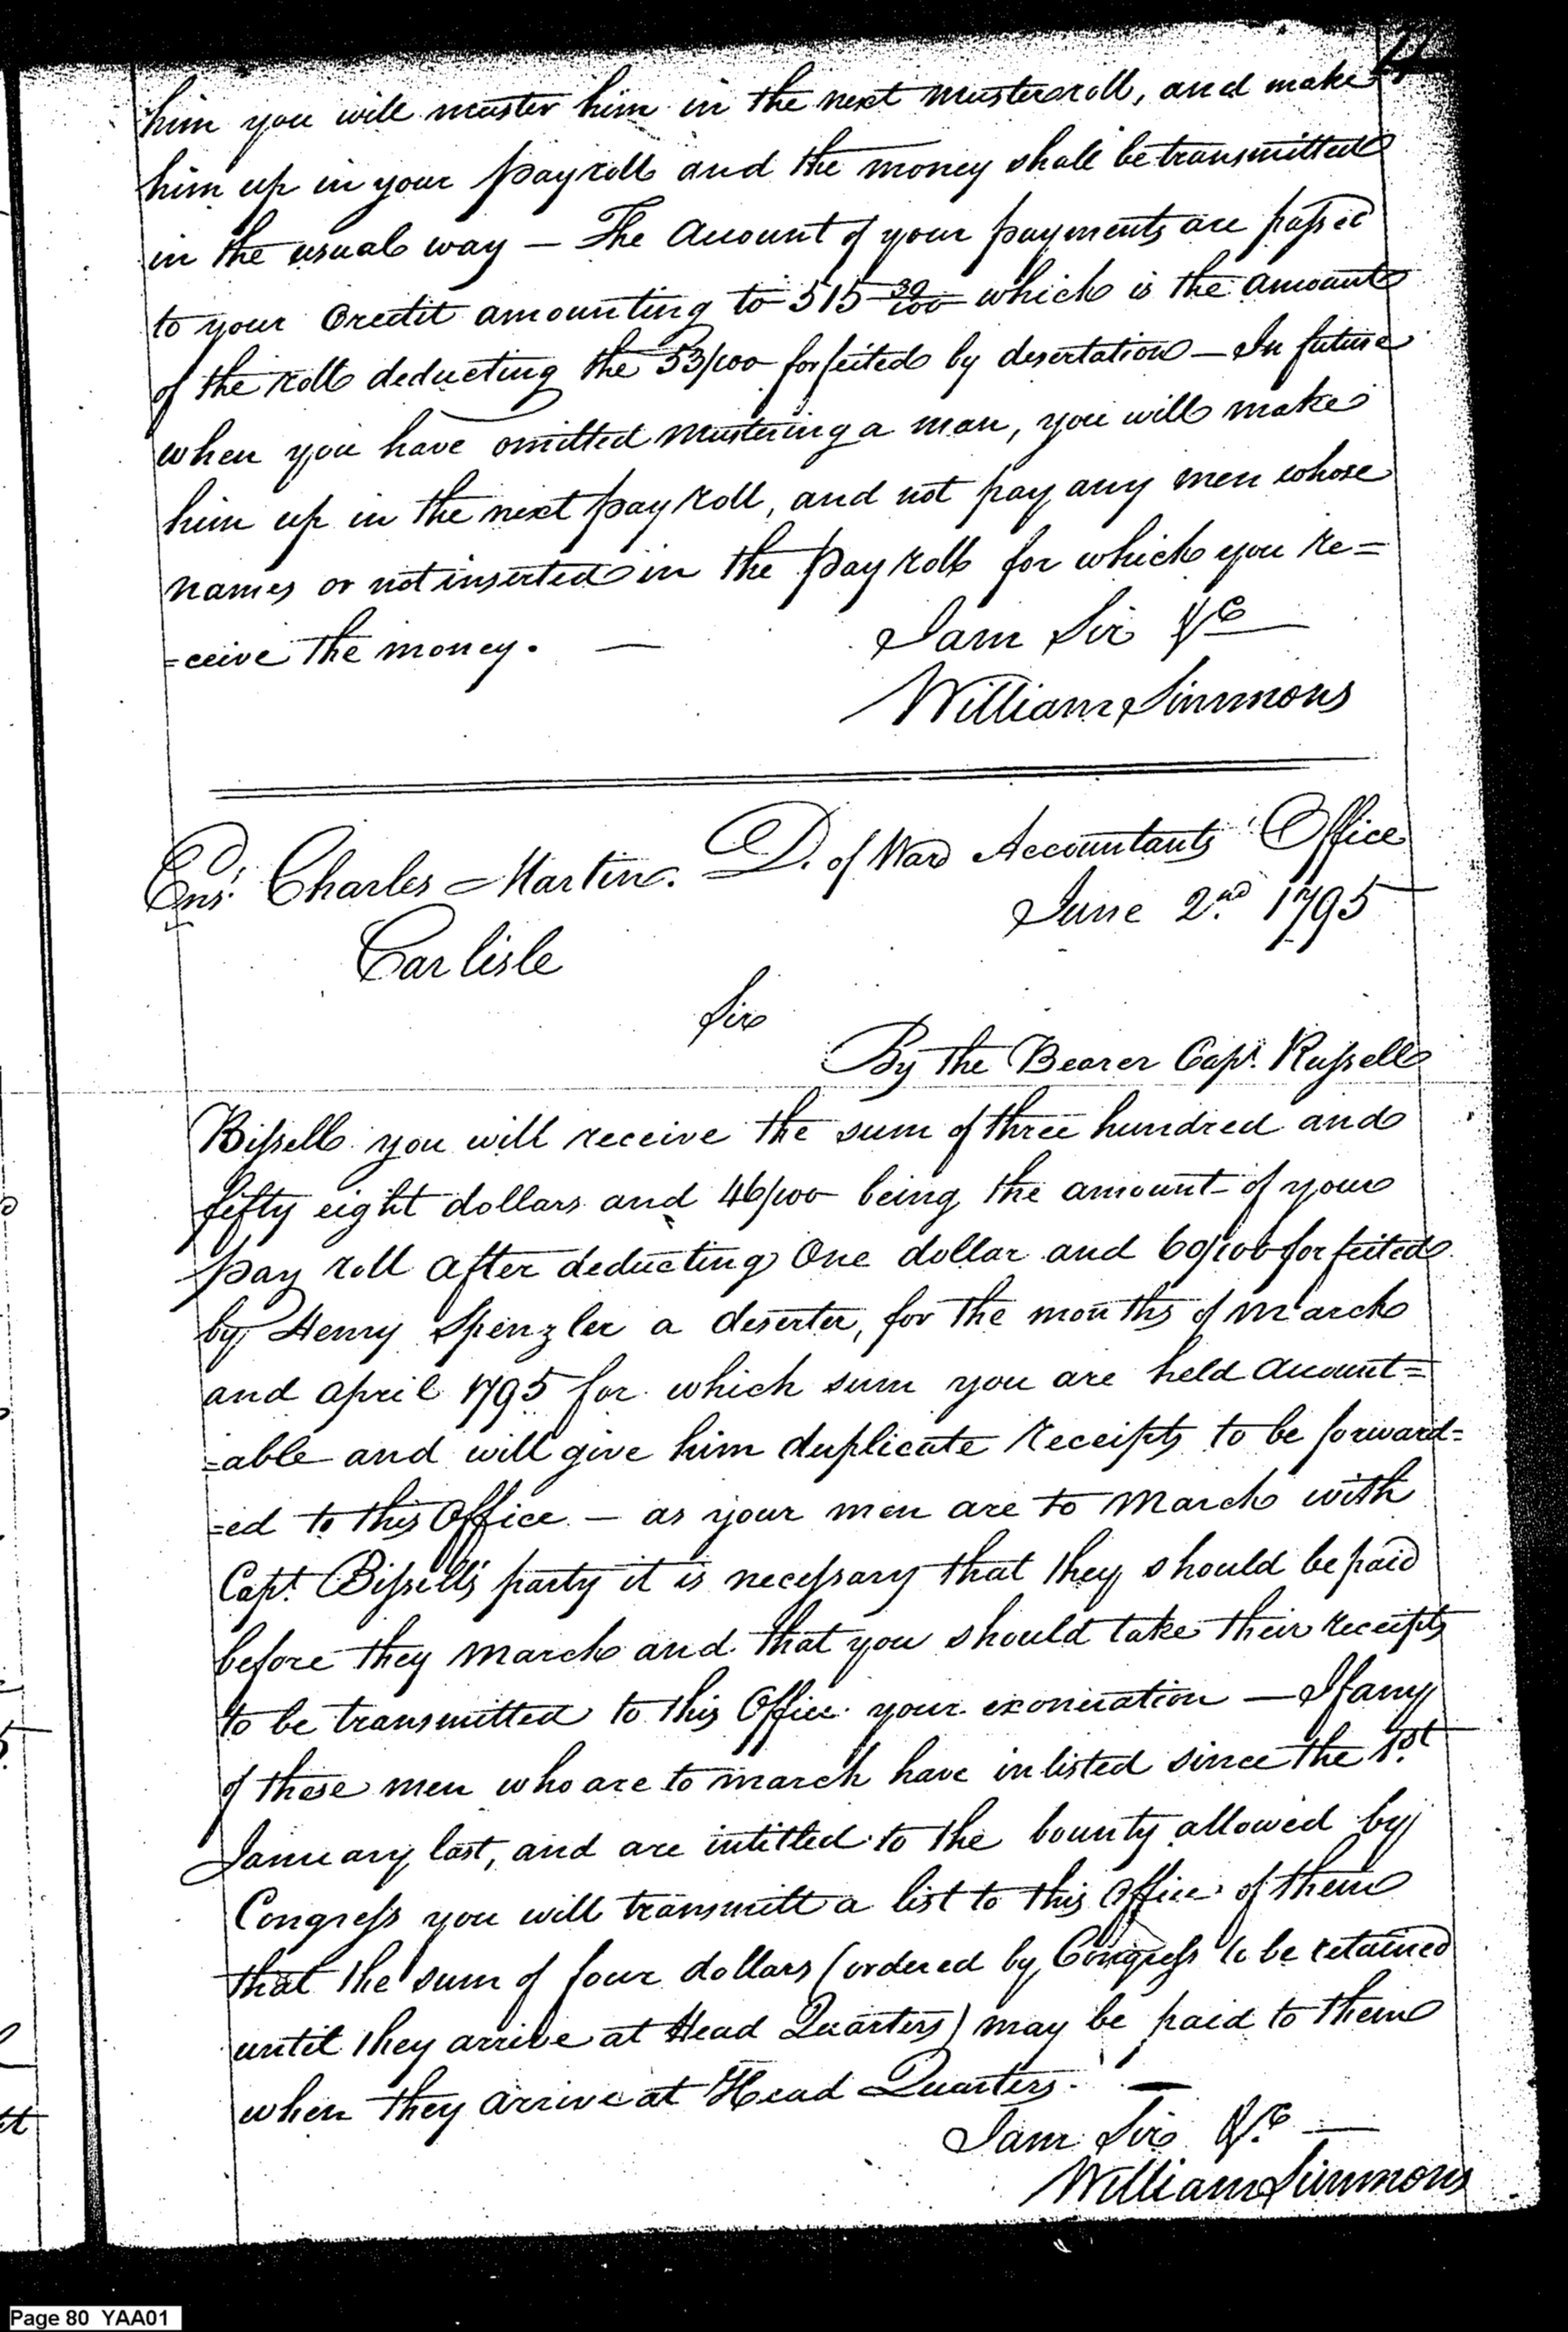 him you will muster him in the next musterroll, and make
him up in your payroll and the money shall be transmitted
in the usual way — The Account of your payments are passed
to your Credit amounting to 515 39/100 which is the amount
of the roll deducting the 53/100 forfeited by desertation — In future
when you have omitted mustering a man, you will make
him up in the next pay roll, and not pay any men whose
names or not inserted in the pay roll for which you re=
=ceive the money. —
I am Sir &c
William Simmons
Ens.n Charles Martin. D. of War Accountants Office
June 2nd 1795
Carlisle
Sir
By the Bearer Capt. Russell
Bissell you will receive the sum of three hundred and
fifty eight dollars and 46/100 being the amount of your
pay roll after deducting One dollar and 60/100 forfeited
by Henry Spenzler a deserter, for the months of March
and april 1795 for which sum you are held account=
=able and will give him duplicate receipts to be forward=
=ed to this Office — as your men are to march with
Capt. Bissell's party it is necessary that they should be paid
before they march and that you should take their receipts
to be transmitted to this Office your exoneration — If any
of these men who are to march have inlisted since the 1st
January last, and are intitled to the bounty allowed by
Congress you will transmitt a list to this office of them
that the sum of four dollars (ordered by Congress to be retained
until they arrive at Head Quarters) may be paid to them
when they arrive at Head Quarters. —
I am Sir &c. —
William Simmons
Page 80 YAA01